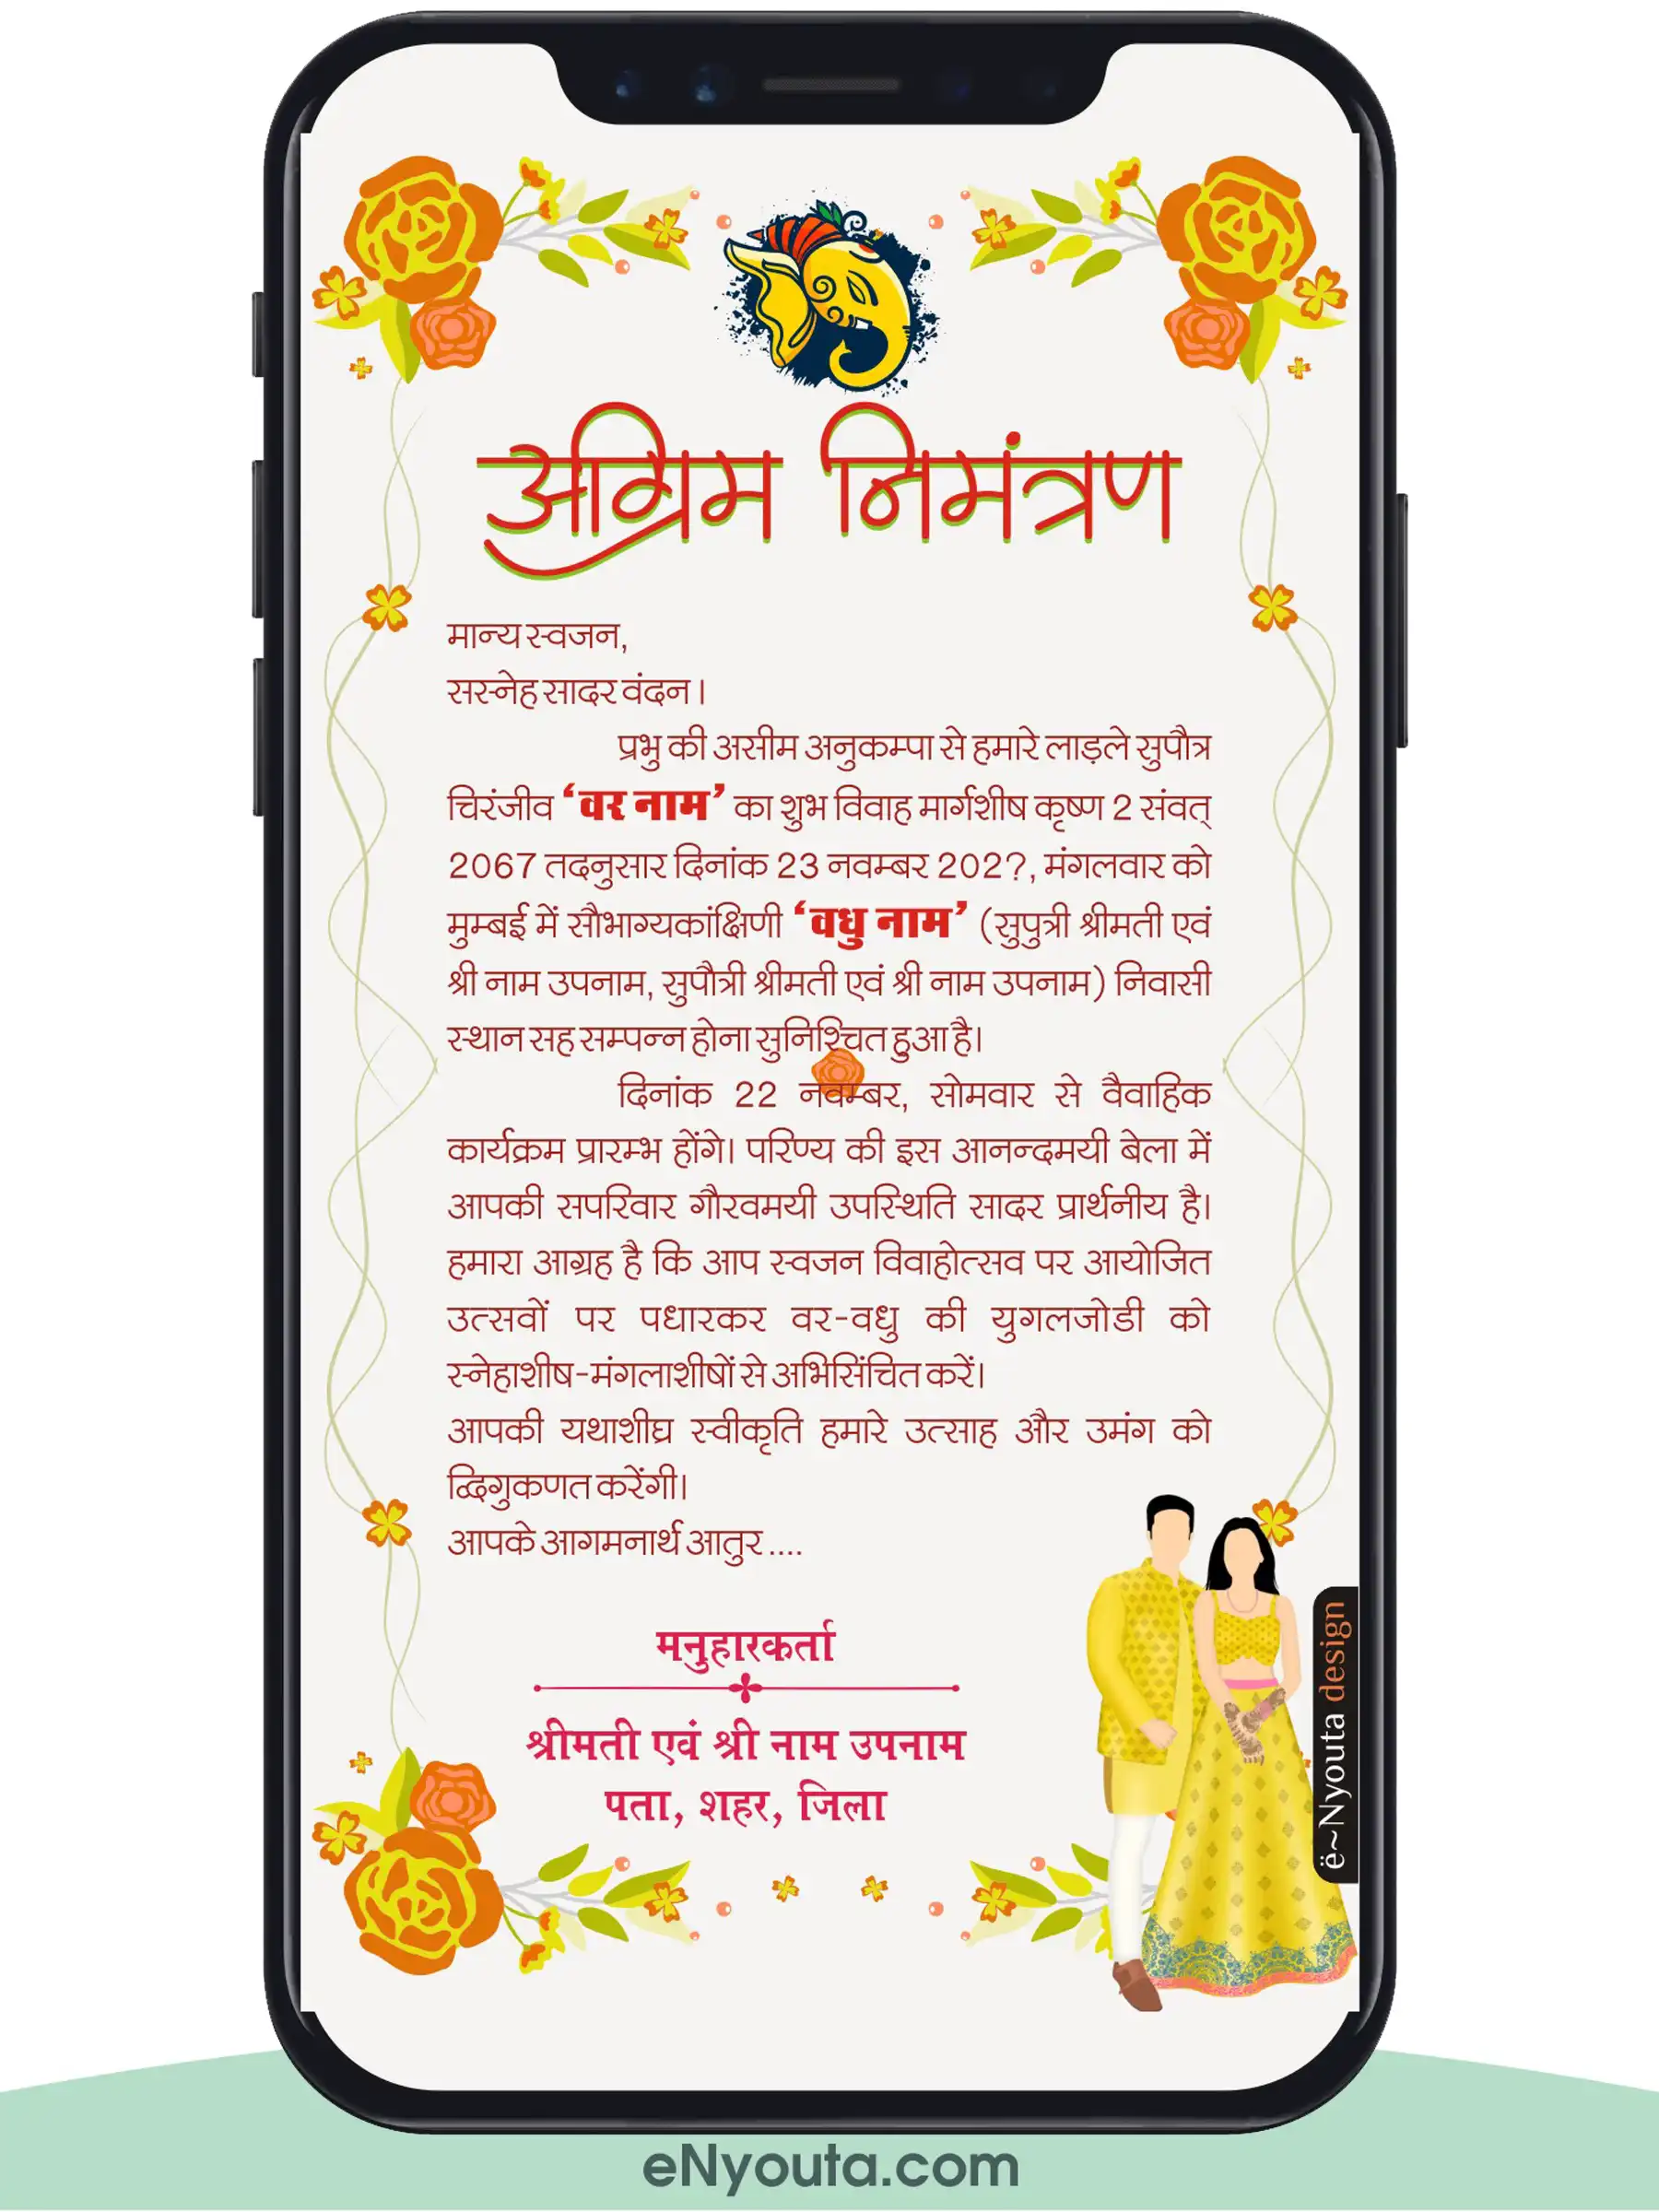 अग्रिम निमंत्रण
मान्य स्वजन,
सस्नेह सादर वंदन।
प्रभु की असीम अनुकम्पा से हमारे लाड़ले सुपौत्र
चिरंजीव ‘वर नाम’ का शुभ विवाह मार्गशीष कृष्ण 2 संवत्
2067 तदनुसार दिनांक 23 नवम्बर 202?, मंगलवार को
मुम्बई में सौभाग्यकांक्षिणी ‘वधु नाम’ (सुपुत्री श्रीमती एवं
श्री नाम उपनाम, सुपौत्री श्रीमती एवं श्री नाम उपनाम) निवासी
स्थान सह सम्पन्न होना सुनिश्चित हुआ है।
दिनांक 22 नवम्बर, सोमवार से वैवाहिक
कार्यक्रम प्रारम्भ होंगे। परिण्य की इस आनन्दमयी बेला में
आपकी सपरिवार गौरवमयी उपस्थिति सादर प्रार्थनीय है।
हमारा आग्रह है कि आप स्वजन विवाहोत्सव पर आयोजित
उत्सवों पर पधारकर वर-वधु की युगलजोडी को
स्नेहाशीष-मंगलाशीषों से अभिसिंचित करें।
आपकी यथाशीघ्र स्वीकृति हमारे उत्साह और उमंग को
द्विगुकणत करेंगी।
आपके आगमनार्थ आतुर ....
मनुहारकर्ता
श्रीमती एवं श्री नाम उपनाम
पता, शहर, जिला
ë~Nyouta design
eNyouta.com